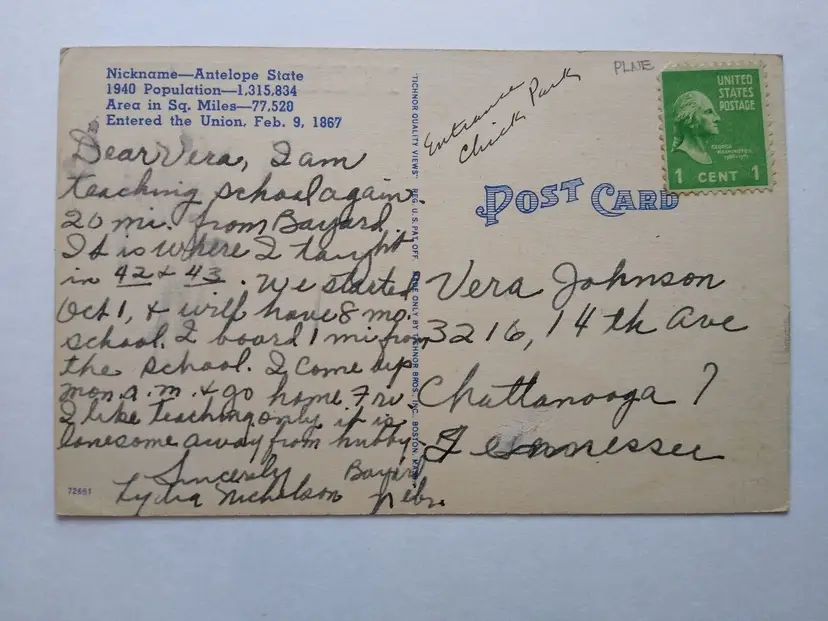 Nickname—Antelope State
1940 Population—1,315,834
Area in Sq. Miles—77,520
Entered the Union, Feb. 9, 1867
Dear Vera, I am
teaching school again
20 mi. from Bayard
It is where I taught
in 42 & 43. We started
Oct 1, & will have 8 mo.
school. I board 1 mi from
the school. I come up
Mon. a.m. & go home Fri.
I like teaching only it is
lonesome away from hubby.
Sincerely
Lydia Nicholson
Bayard
Nebr.
72661
"TICHNOR QUALITY VIEWS" REG. U.S. PAT. OFF. MADE ONLY BY TICHNOR BROS., INC., BOSTON, MASS.
Entrance
Chick Park
PLNE
UNITED
STATES
POSTAGE
GEORGE
WASHINGTON
1 CENT 1
POST CARD
Vera Johnson
3216, 14th Ave
Chattanooga 7
Tennessee